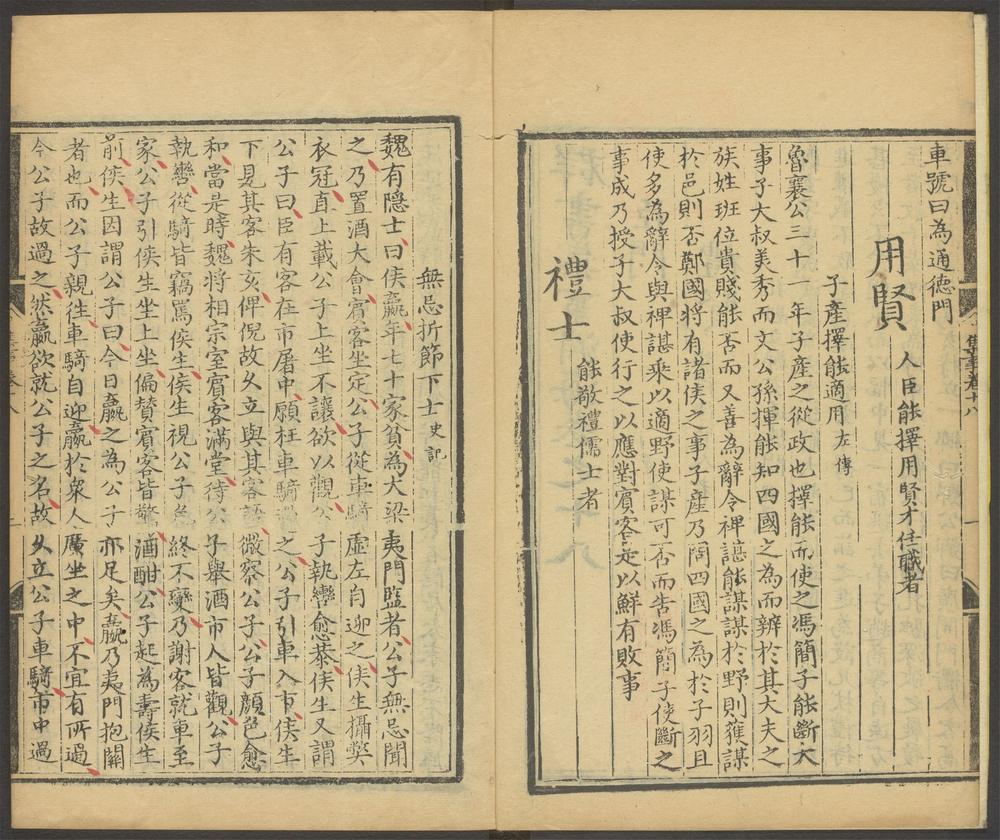 車號曰為通德門
用賢 人臣能擇用賢才任職者
子產擇能適用 左傳
魯襄公三十一年子產之從政也擇能而使之馮簡子能斷大
事子大叔美秀而文公孫揮能知四國之為而辨於其大夫之
族姓班位貴賤能否而又善為辭令裨諶能謀謀於野則獲謀
於邑則否鄭國將有諸侯之事子產乃問四國之為於子羽且
使多為辭令與裨諶乘以適野使謀可否而告馮簡子使斷之
事成乃授子大叔使行之以應對賓客是以鮮有敗事
禮士 能敬禮儒士者
無忌折節下士 史記
魏有隱士曰侯嬴年七十家貧為大梁夷門監者公子無忌聞
之乃置酒大會賓客坐定公子從車騎虛左自迎之侯生攝弊
衣冠直上載公子上坐不讓欲以觀公子執轡愈恭侯生又謂
公子曰臣有客在市屠中願枉車騎過之公子引車入市侯生
下見其客朱亥俾倪故久立與其客語微察公子公子顏色愈
和當是時魏將相宗室賓客滿堂待公子舉酒市人皆觀公子
執轡從騎皆竊罵侯生侯生視公子色終不變乃謝客就車至
家公子引侯生坐上坐偏贊賓客皆驚酒酣公子起為壽侯生
前侯生因謂公子曰今日嬴之為公子亦足矣嬴乃夷門抱關
者也而公子親往車騎自迎嬴於眾人廣坐之中不宜有所過
今公子故過之然嬴欲就公子之名故久立公子車騎市中過